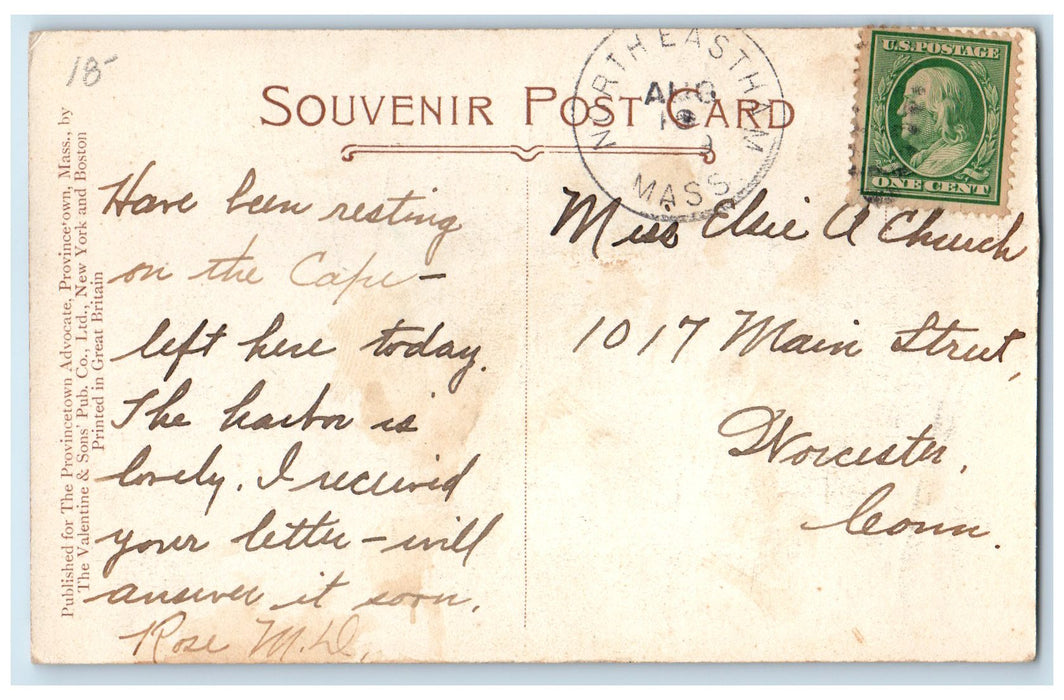 18-
SOUVENIR POST CARD
NORTH EASTHAM
AUG
MASS.
U.S. POSTAGE
ONE CENT
Published for The Provincetown Advocate, Provincetown, Mass., by
The Valentine & Sons' Pub. Co., Ltd., New York and Boston
Printed in Great Britain
Have been resting
on the Cape –
left here today.
The harbor is
lovely. I received
your letter – will
answer it soon.
Rose M. D.
Miss Elsie A Church
1017 Main Street,
Worcester,
Conn.